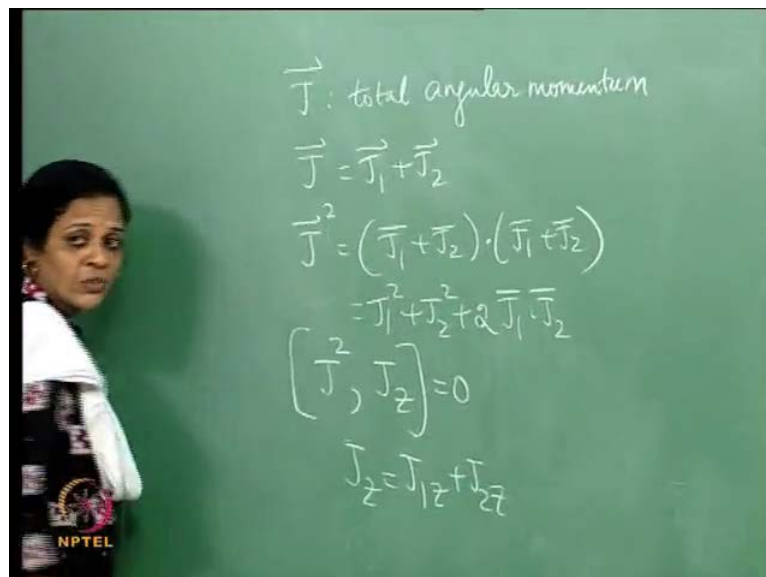 J⃗ : total angular momentum
J⃗ = J⃗₁ + J⃗₂
J⃗² = (J̄₁ + J̄₂)·(J̄₁ + J̄₂)
= J₁² + J₂² + 2 J̄₁·J̄₂
[J², J_z] = 0
J_z = J₁z + J₂z
NPTEL